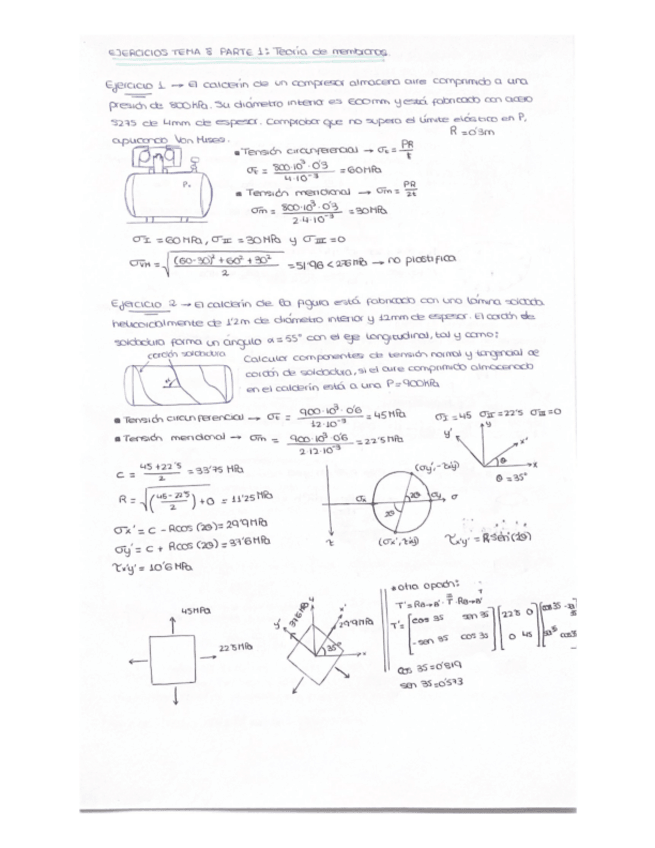 EJERCICIOS TEMA 8 PARTE 1: Teoría de membranas.
Ejercicio 1 → El calderín de un compresor almacena aire comprimido a una
presión de 800 kPa. Su diámetro interior es 600mm y está fabricado con acero
S275 de 4mm de espesor. Comprobar que no supera el límite elástico en P,
aplicando Von Mises.
R = 0'3m
• Tensión circunferencial → σt = PR/t
σt = 800·10³·0'3 / 4·10⁻³ = 60 MPa
• Tensión meridional → σm = PR/2t
σm = 800·10³·0'3 / 2·4·10⁻³ = 30 MPa
P.
σI = 60 MPa, σII = 30 MPa y σIII = 0
σVM = √((60-30)² + 60² + 30² / 2) = 51'96 < 275 MPa → no plastifica
Ejercicio 2 → El calderín de la figura está fabricado con una lámina soldada
helicoidalmente de 1'2m de diámetro interior y 12mm de espesor. El cordón de
soldadura forma un ángulo α = 55° con el eje longitudinal, tal y como:
cordón soldadura
Calcular componentes de tensión normal y tangencial al
cordón de soldadura, si el aire comprimido almacenado
en el calderín está a una P = 900kPa
• Tensión circunferencial → σt = 900·10³·0'6 / 12·10⁻³ = 45 MPa
σI = 45 σII = 22'5 σIII = 0
• Tensión meridional → σm = 900·10³·0'6 / 2·12·10⁻³ = 22'5 MPa
y' y x' x θ
θ = 35°
C = 45 + 22'5 / 2 = 33'75 MPa
R = √((45 - 22'5 / 2)² + 0) = 11'25 MPa
σx' = C - Rcos (2θ) = 29'9 MPa
σy' = C + Rcos (2θ) = 37'6 MPa
τx'y' = 10'6 MPa
(σy', -τx'y')
σx 2θ σy σ
2θ
τ
(σx', τx'y')
τx'y' = R sen (2θ)
45 MPa
22'5 MPa
37'6 MPa
29'9 MPa
y' y x' x
35°
• otra opción:
T' = RB→B' · T · RB→B'
T' = [cos 35 sen 35
-sen 35 cos 35] [22'5 0
0 45]
cos 35 = 0'819
sen 35 = 0'573